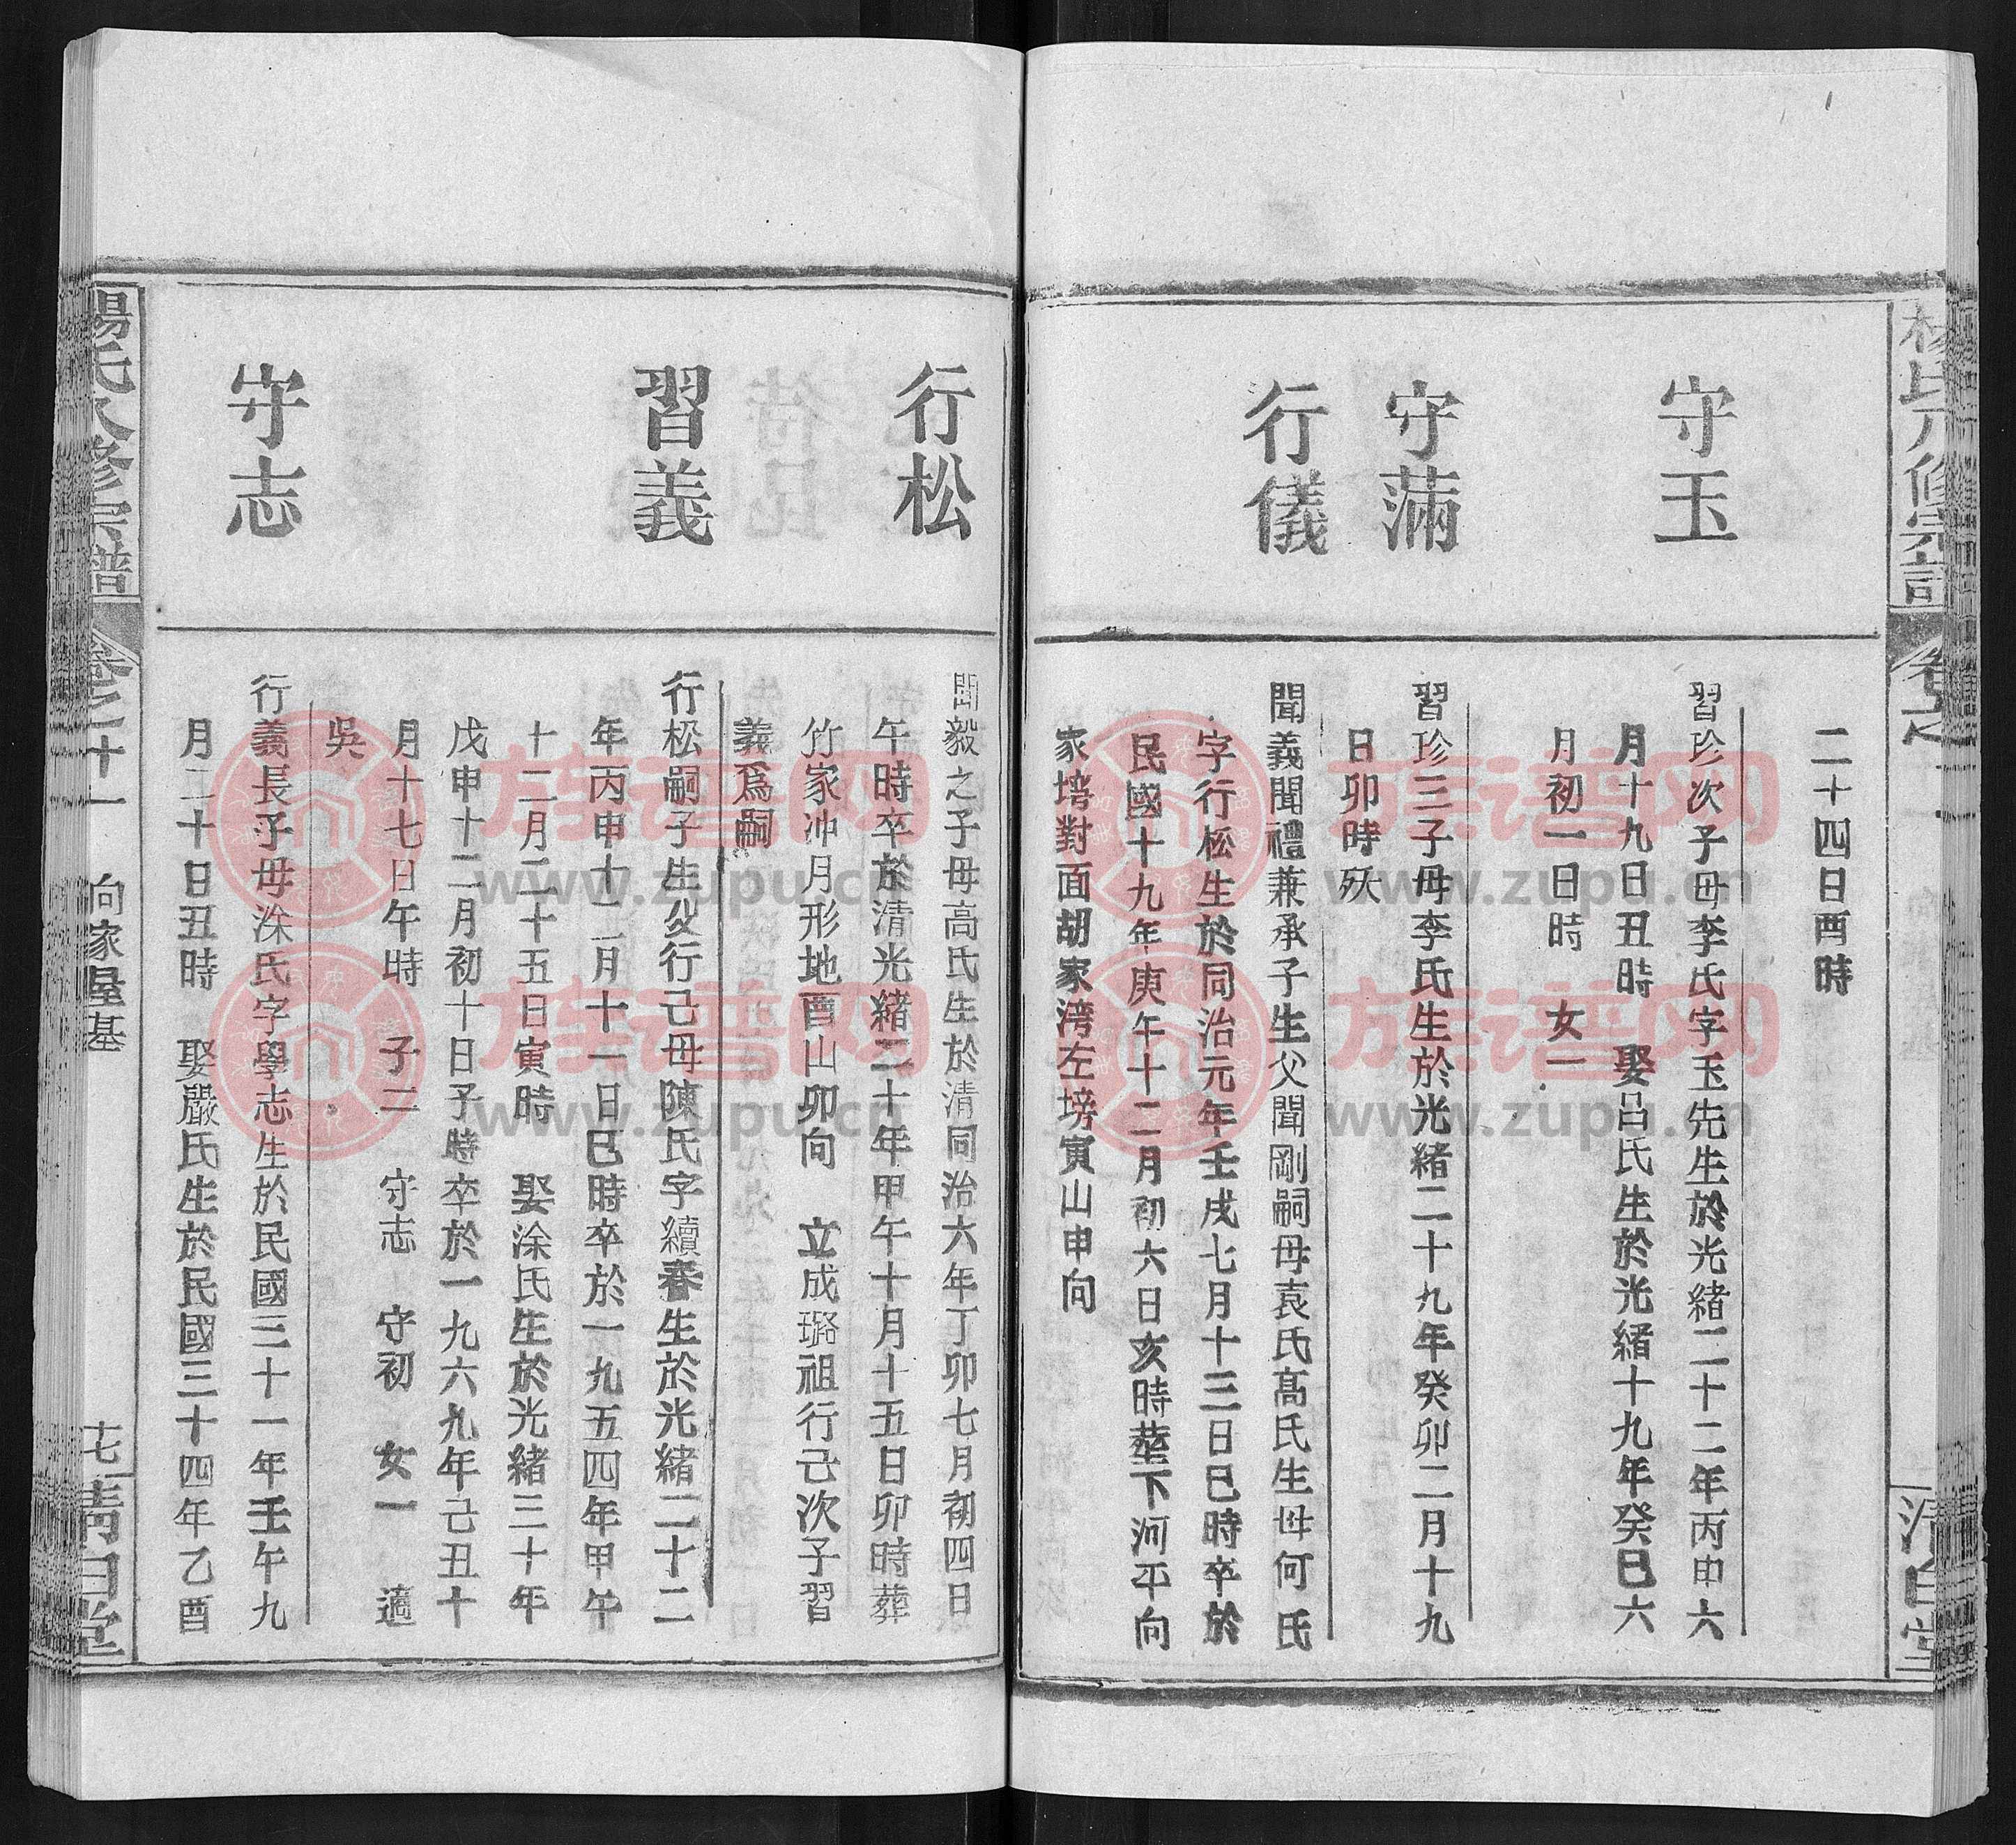 守玉
守蒲
行儀
二十四日酉時
習珍次子母李氏字玉先生於光緒二十二年丙申六
月十九日丑時 娶呂氏生於光緒十九年癸巳六
月初一日時 女一
習珍三子母李氏生於光緒二十九年癸卯二月十九
日卯時殀
聞義聞禮兼承子生父聞剛嗣母袁氏高氏生母何氏
字行松生於同治元年壬戌七月十三日巳時卒於
民國十九年庚午十二月初六日亥時塟下河平向
家塝對面胡家湾左塝寅山申向
清白堂
行松
習義
守志
聞毅之子母高氏生於清同治六年丁卯七月初四日
午時卒於清光緒二十年甲午十月十五日卯時葬
竹家冲月形地酉山卯向 立成璐祖行己次子習
義爲嗣
行松嗣子生父行己母陳氏字續春生於光緒二十二
年丙申十二月十一日巳時卒於一九五四年甲午
十二月二十五日寅時 娶涂氏生於光緒三十年
戊申十二月初十日子時卒於一九六九年己丑十
月十七日午時 子二 守志 守初 女一 適
吳
行義長子母涂氏字學志生於民國三十一年壬午九
月二十日丑時 娶嚴氏生於民國三十四年乙酉
楊氏八修宗譜 卷之十一 向家屋基 清白堂
族谱网
www.zupu.cn
族谱网
www.zupu.cn
族谱网
www.zupu.cn
族谱网
www.zupu.cn